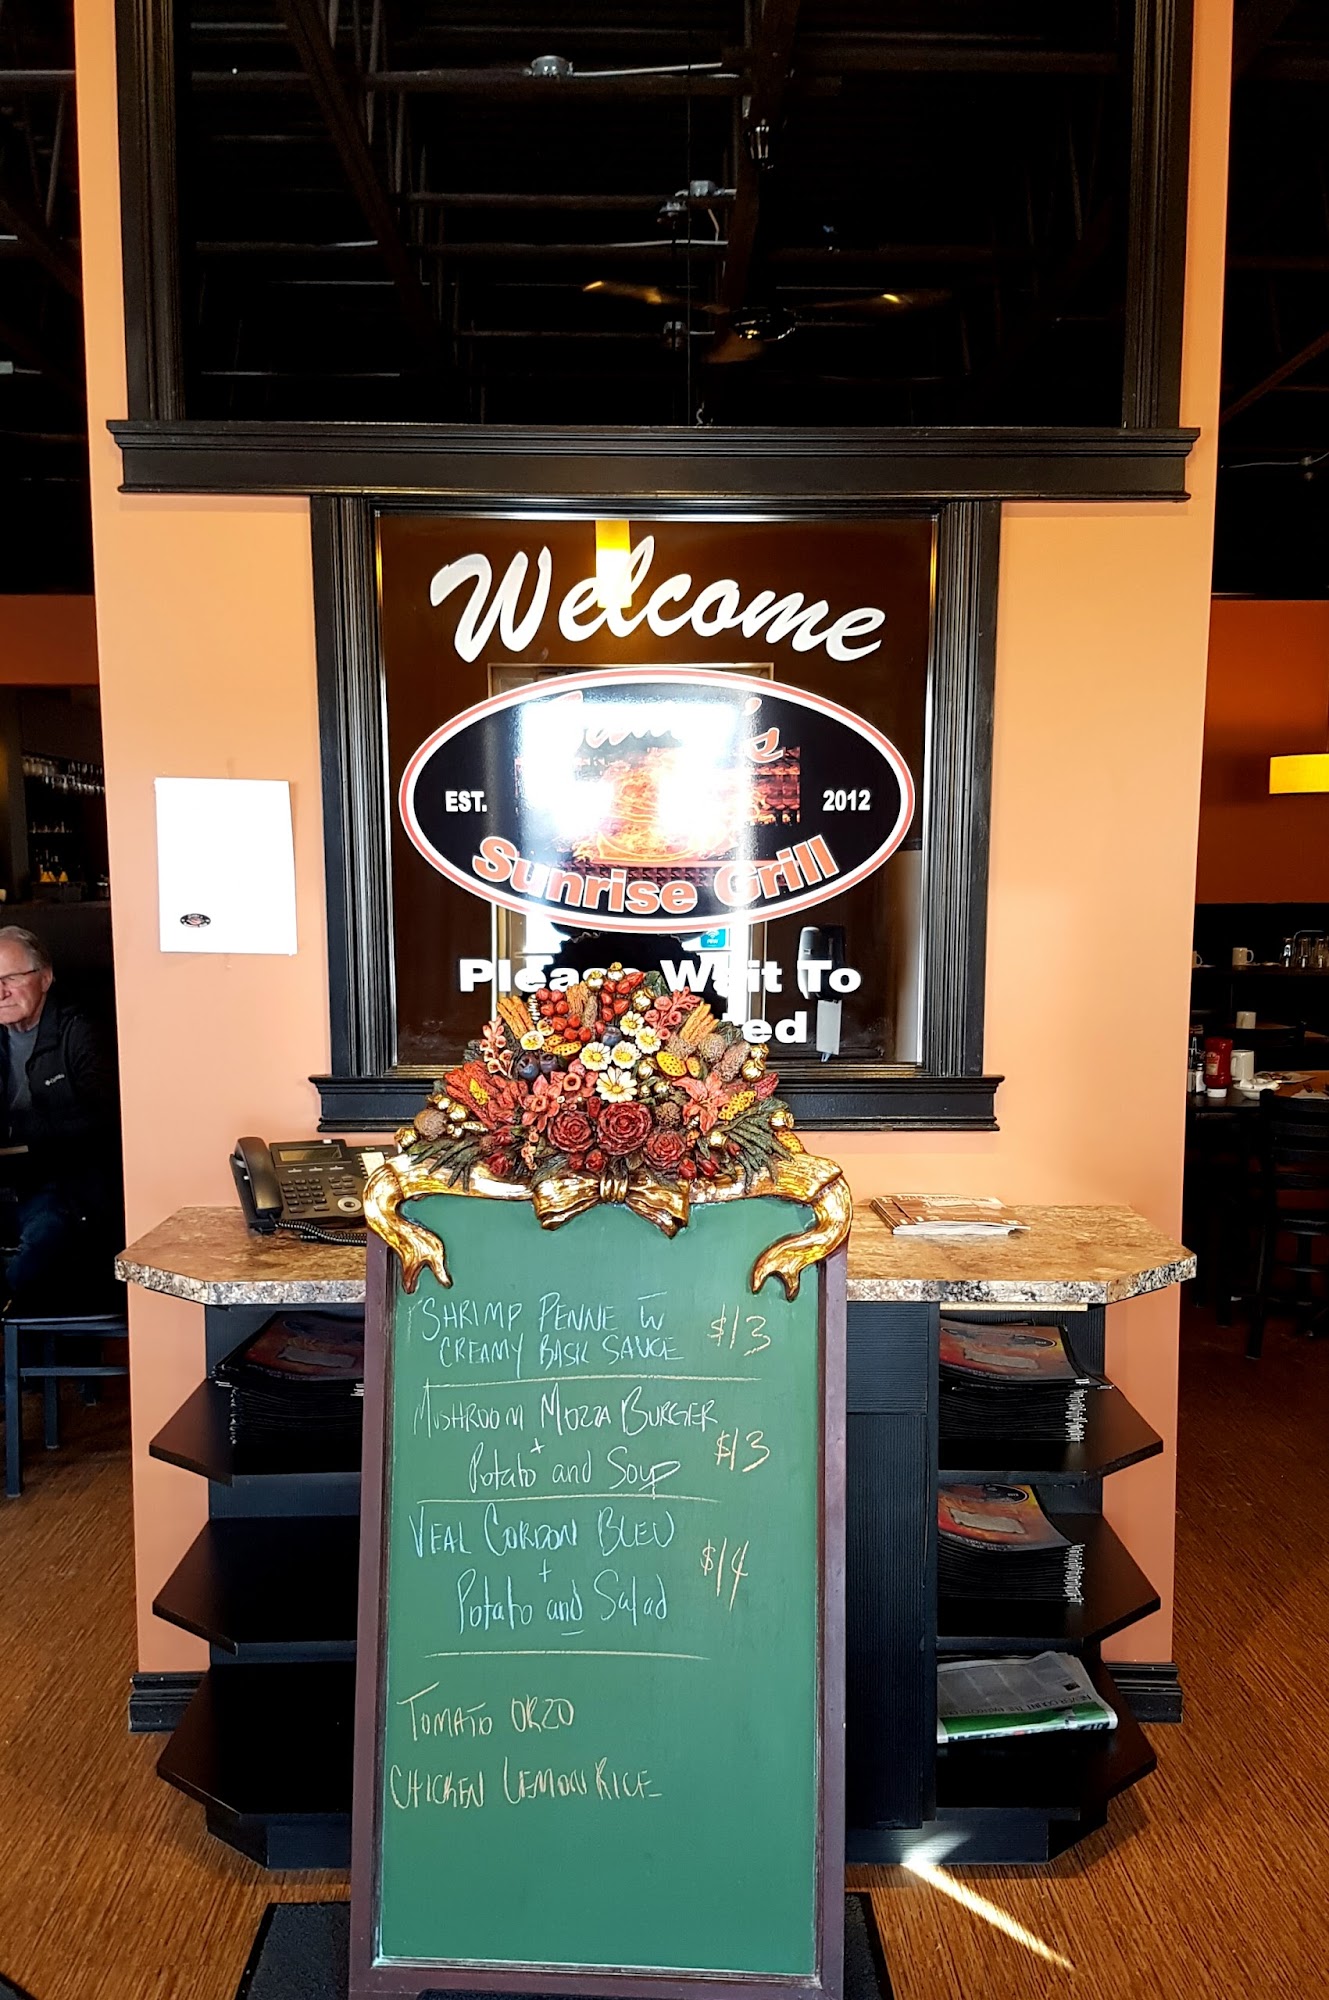 Welcome
EST.
2012
Sunrise Grill
Please Wait To
SHRIMP PENNE W
CREAMY BASIL SAUCE
$13
MUSHROOM MOZZA BURGER
+
Potato and Soup
$13
VEAL CORDON BLEU
+
Potato and Salad
$14
TOMATO ORZO
CHICKEN LEMON RICE